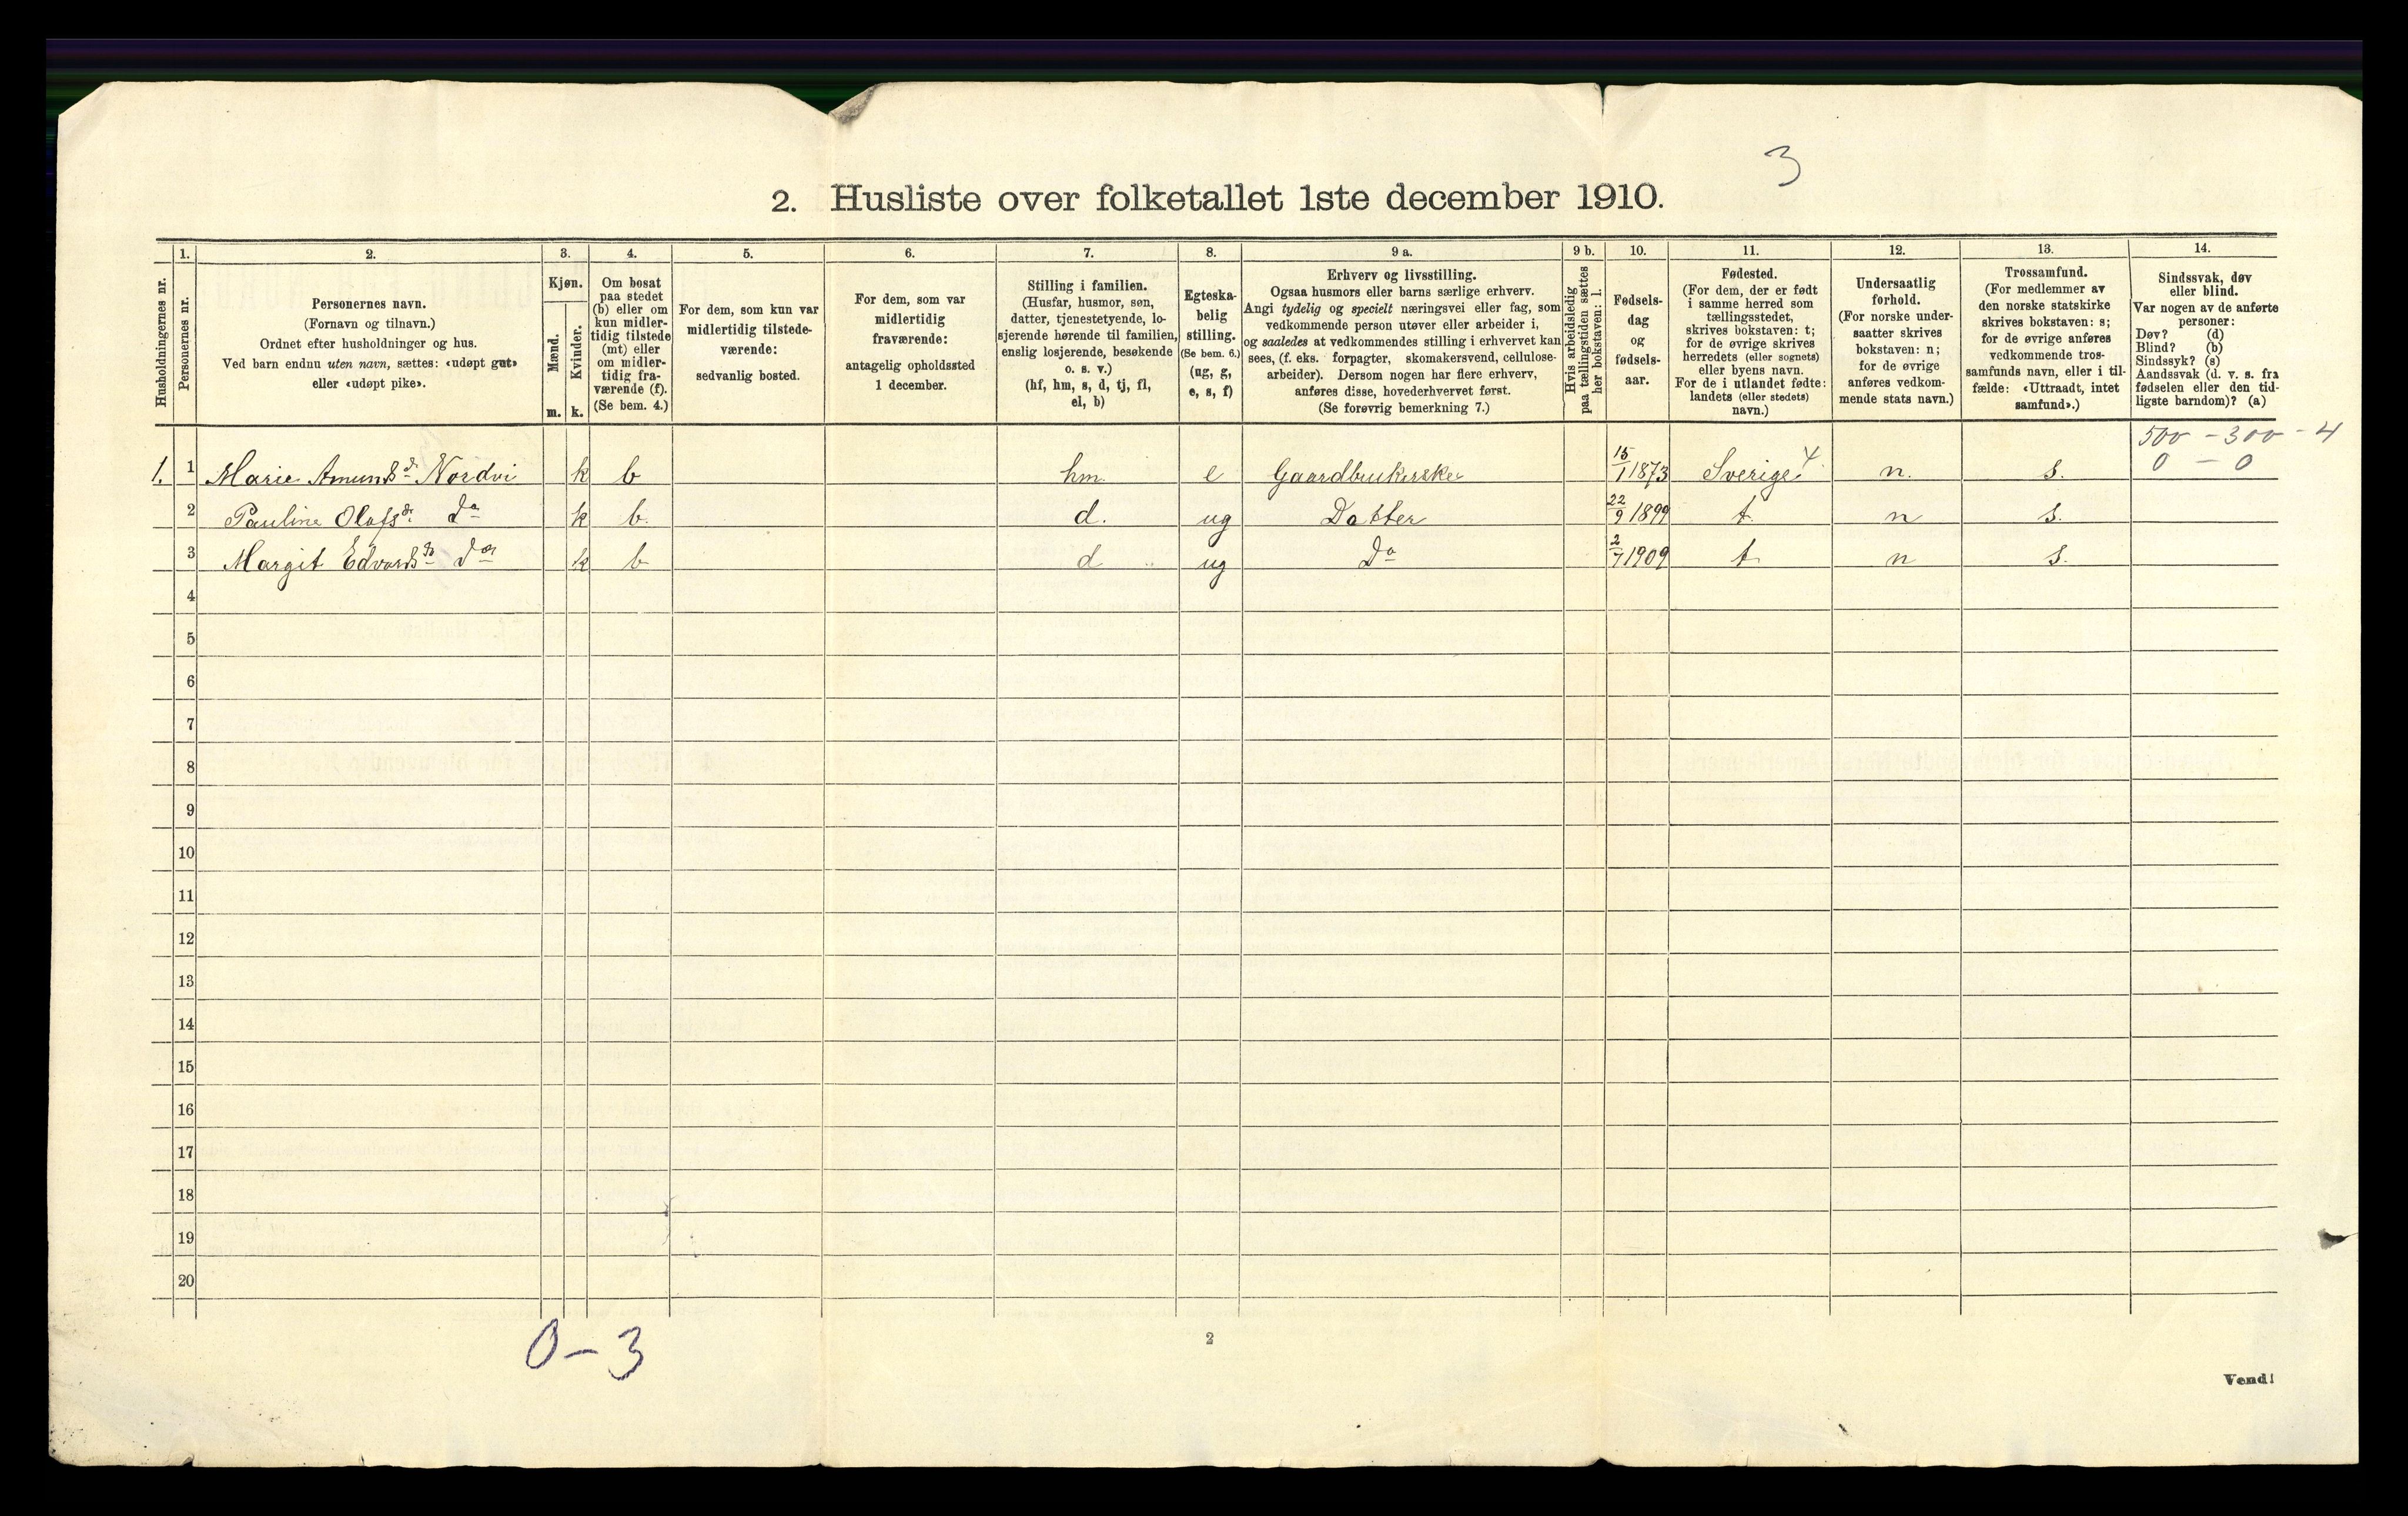 3
2. Husliste over folketallet 1ste december 1910.
Husholdningernes nr.
1.
Personernes nr.
2.
Personernes navn.
(Fornavn og tilnavn.)
Ordnet efter husholdninger og hus.
Ved barn endnu uten navn, sættes: «udøpt gut»
eller «udøpt pike».
3.
Kjøn.
Mænd.
Kvinder.
m.
k.
4.
Om bosat
paa stedet
(b) eller om
kun midler-
tidig tilstede
(mt) eller
om midler-
tidig fra-
værende (f).
(Se bem. 4.)
5.
For dem, som kun var
midlertidig tilstede-
værende:
sedvanlig bosted.
6.
For dem, som var
midlertidig
fraværende:
antagelig opholdssted
1 december.
7.
Stilling i familien.
(Husfar, husmor, søn,
datter, tjenestetyende, lo-
sjerende hørende til familien,
enslig losjerende, besøkende
o. s. v.)
(hf, hm, s, d, tj, fl,
el, b)
8.
Egteska-
belig
stilling.
(Se bem. 6.)
(ug, g,
e, s, f)
9 a.
Erhverv og livsstilling.
Ogsaa husmors eller barns særlige erhverv.
Angi tydelig og specielt næringsvei eller fag, som
vedkommende person utøver eller arbeider i,
og saaledes at vedkommendes stilling i erhvervet kan
sees, (f. eks. forpagter, skomakersvend, cellulose-
arbeider). Dersom nogen har flere erhverv,
anføres disse, hovederhvervet først.
(Se forøvrig bemerkning 7.)
9 b.
Hvis arbeidsledig
paa tællingstiden sættes
her bokstaven: l.
10.
Fødsels-
dag
og
fødsels-
aar.
11.
Fødested.
(For dem, der er født
i samme herred som
tællingsstedet,
skrives bokstaven: t;
for de øvrige skrives
herredets (eller sognets)
eller byens navn.
For de i utlandet fødte:
landets (eller stedets)
navn.)
12.
Undersaatlig
forhold.
(For norske under-
saatter skrives
bokstaven: n;
for de øvrige
anføres vedkom-
mende stats navn.)
13.
Trossamfund.
(For medlemmer av
den norske statskirke
skrives bokstaven: s;
for de øvrige anføres
vedkommende tros-
samfunds navn, eller i til-
fælde: «Uttraadt, intet
samfund».)
14.
Sindssvak, døv
eller blind.
Var nogen av de anførte
personer:
Døv? (d)
Blind? (b)
Sindssyk? (s)
Aandssvak (d. v. s. fra
fødselen eller den tid-
ligste barndom)? (a)
500 - 300 - 4
0 - 0
1. 1 Marie Amundsd. Nordvi k b hm e Gaardbrukerske 15/1 1873 Sverige 4 n. s.
2 Pauline Olafsd. Do k b. d. ug Datter 22/9 1899 t. n s.
3 Margit Edvardsd. Do k b d ug Do 2/7 1909 t n s.
4
5
6
7
8
9
10
11
12
13
14
15
16
17
18
19
20
0-3
2
Vend!